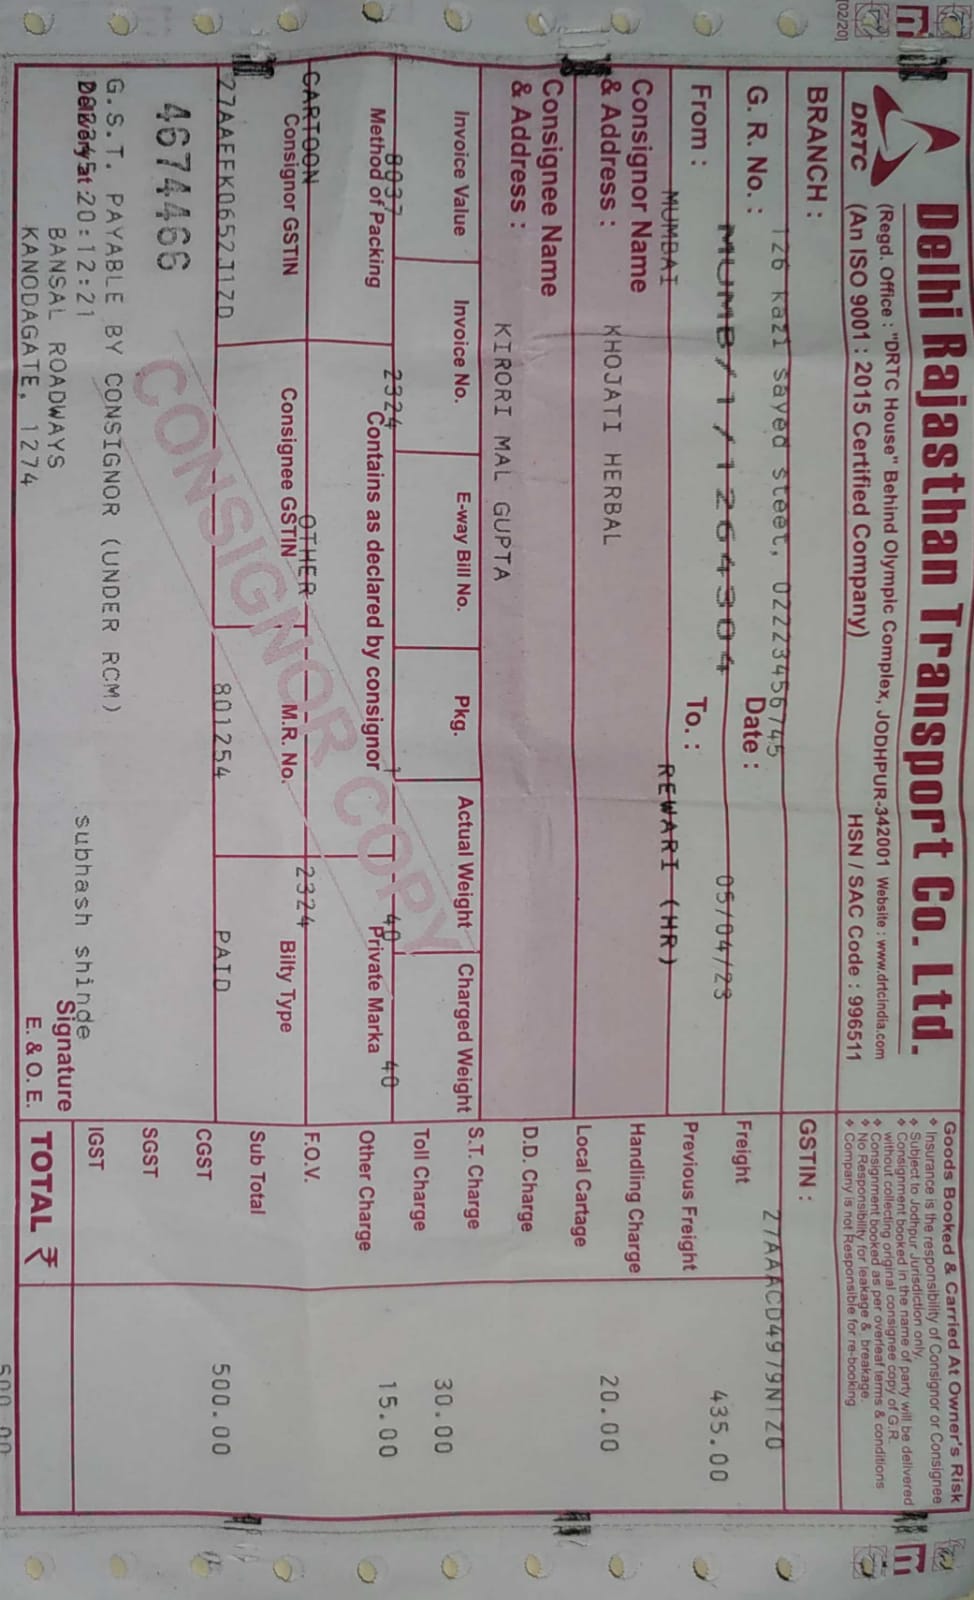 [02/20]
Delhi Rajasthan Transport Co. Ltd.
DRTC
(Regd. Office : "DRTC House" Behind Olympic Complex, JODHPUR-342001 Website : www.drtcindia.com
(An ISO 9001 : 2015 Certified Company) HSN / SAC Code : 996511
Goods Booked & Carried At Owner's Risk
Insurance is the responsibility of Consignor or Consignee
Subject to Jodhpur Jurisdiction only.
Consignment booked in the name of party will be delivered
without collecting original consignee copy of G.R.
Consignment booked as per overleaf terms & conditions
No Responsibility for leakage & breakage.
Company is not Responsible for re-booking
BRANCH : GSTIN :
126 kazi sayed steet, 02223456745 27AAACD4979N1ZO
G. R. No. : MUMB/1/1264304 Date : 05/04/23
From : MUMBAI To. : REWARI (HR)
Consignor Name
& Address : KHOJATI HERBAL
Consignee Name
& Address : KIRORI MAL GUPTA
Invoice Value Invoice No. E-way Bill No. Pkg. Actual Weight Charged Weight
8037 2324 1 40 40
Method of Packing Contains as declared by consignor Private Marka
CARTOON OTHER 2324
Consignor GSTIN Consignee GSTIN M.R. No. Bilty Type
27AAEFK0657J1ZD 801254 PAID
CONSIGNOR COPY
4674466
G.S.T. PAYABLE BY CONSIGNOR (UNDER RCM)
Delivery at 20:12:21 subhash shinde
BANSAL ROADWAYS Signature
KANODAGATE, 1274 E. & O. E.
Freight 435.00
Previous Freight
Handling Charge 20.00
Local Cartage
D.D. Charge
S.T. Charge
Toll Charge 30.00
Other Charge 15.00
F.O.V.
Sub Total
CGST 500.00
SGST
IGST
TOTAL ₹
500.00